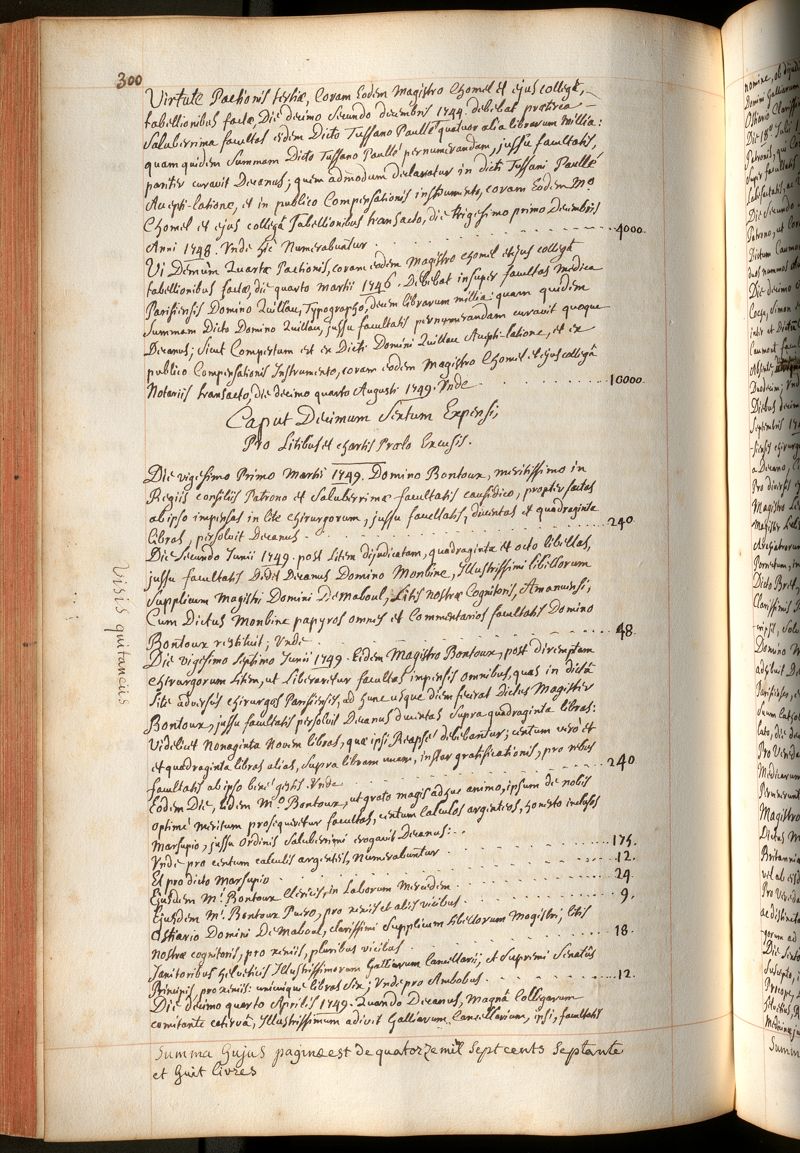 300
Virtute Pactionis tertiæ, Coram Eodem Magistro Chomel et ejus collegâ,
tabellionibus factæ, Die decimo secundo decembris 1744. debebat præterea
Saluberrima facultas eidem Dicto Tussano Paullé quatuor alia librarum millia:
quam quidem Summam Dicto Tussano Paullé pernumerandam, jussu facultatis,
pariter curavit Decanus; quem admodum declaratur in dicti Tussani Paullé
Accepti-latione, et in publico Compensationis instrumento, coram Eodem Mo.
Chomel et ejus collegâ Tabellionibus transacto, die trigesimo primo Decembris
Anni 1748. Unde hîc Numerabuntur . . . . . . 4000.
Vi Demùm Quartæ Pactionis, coram eodem Magistro Chomel et ejus collegâ
tabellionibus factæ, die quarto martii 1746. Debebat insuper facultas medica
Parisiensis Domino Quillau, Typographo, decem librarum millia: quam quidem
Summam Dicto Domino Quillau, jussu facultatis pernumerandam curavit quoque
Decanus; Sicut Compertum est ex Dicti Domini Quillau Accepti-latione, et ex
publico Compensationis Instrumento, coram eodem Magistro Chomel et ejus collegâ
Notariis transacto, die decimo quarto Augusti 1749. Unde . . . . . . 10000.
Caput Decimum Sextum Expensi,
Pro Litibus et chartis Prælo Excusis.
Die vigesimo Primo Martii 1749. Domino Bontoux, meritissimo in
Regiis consiliis Patrono et Saluberrimæ facultatis causidico, propter factas
ab ipso impensas in lite chirurgorum, jussu facultatis, ducentas et quadraginta
libras, persolvit Decanus . . . . . . 240
Die Secundo Junii 1749. post Litem dijudicatam, quadraginta et octo libellas,
jussu facultatis Dedit Decanus Domino Monbine, Illustrissimi libellorum
Supplicum Magistri Domini De Maboul, Litis nostræ Cognitoris, Amanuensi,
Cum Dictus Monbine papyros omnes et Commentarios facultatis Domino
Bontoux restituit; Unde . . . . . . 48.
Die vigesimo Septimo Junii 1749. Eidem Magistro Bontoux, post diremptam
Chirurgorum Litem, ut Liberaretur facultas impensis omnibus, quas in dictâ
Lite adversus chirurgos Parisienses, ad hunc usque diem fecerat Dictus Magister
Bontoux, jussu facultatis persolvit Decanus ducentas supra quadraginta libras:
Videlicet Nonaginta Novem libras, quæ ipsi Reapsè debebantur; centum verò et
et quadraginta libras alias, supra libram unam, instar gratificationis, pro rebus
facultatis ab ipso benè gestis. Unde . . . . . . 240
Eodem Die, Eidem Mo. Bontoux, ut grato magis adhuc animo, ipsum de nobis
optimè meritum prosequeretur facultas, centum Calculos argenteos, honesto inclusos
Marsupio, jussu Ordinis Saluberrimi erogavit Decanus:
Unde pro centum calculis argenteis, numerabuntur . . . . . . 175.
Et pro dicto Marsupio . . . . . . 12.
Ejusdem Mi. Bontoux Clericis, in Laborum Mercedem . . . . . . 24
Ejusdem Mi. Bontoux Puero, pro xeniis et aliis vicibus . . . . . . 9.
Ostiario Domini De Maboul, clarissimi Supplicum libellorum Magistri, litis
Nostræ cognitoris, pro xeniis, pluribus vicibus . . . . . . 18.
Janitoribus Helveticis Illustrissimorum Galliarum Cancellarii, et Supremi Senatûs
Principis, pro xeniis: unicuique libras Sex; Unde pro Ambobus . . . . . . 12.
Die decimo quarto Aprilis 1749. Quando Decanus, Magnâ Collegarum
comitante catervâ, Illustrissimum adivit Galliarum Cancellarium, ipsi, facultatis
Visis quitanciis
Summa hujus paginæ est de quatorze mil Sept cents Septante
et huit livres